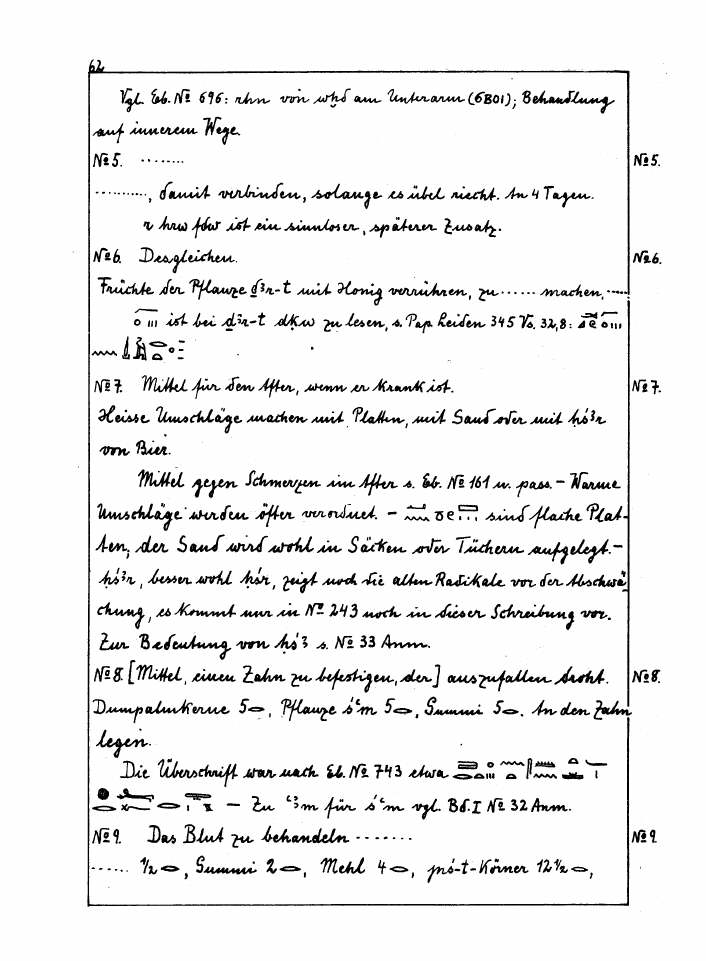 62
Vgl. Eb. № 696: rhn von wḫd am Unterarm (6B01); Behandlung
auf innerem Wege.
№5. ........ №5.
..........., damit verbinden, solange es übel riecht. An 4 Tagen.
r hrw fdw ist ein sinnloser, späterer Zusatz.
№6. Desgleichen. №6.
Früchte der Pflanze ḏꜣr-t mit Honig verrühren, zu ...... machen, .....
ist bei ḏꜣr-t dkw zu lesen, s. Pap. Leiden 345 Vs. 32,8:
№7. Mittel für den After, wenn er krank ist. №7.
Heisse Umschläge machen mit Platten, mit Sand oder mit ḥśꜣr
von Bier.
Mittel gegen Schmerzen im After s. Eb. № 161 u. pass. – Warme
Umschläge werden öfter verordnet. – sind flache Plat-
ten, der Sand wird wohl in Säcken oder Tüchern aufgelegt. –
ḥśꜣr, besser wohl ḥśr, zeigt noch die alten Radikale vor der Abschwä-
chung, es kommt nur in № 243 noch in dieser Schreibung vor.
Zur Bedeutung von ḥśꜣ s. № 33 Anm.
№8. [Mittel, einen Zahn zu befestigen, der] auszufallen droht. №8.
Dumpalmkerne 5 𓂋, Pflanze śꜥm 5 𓂋, Gummi 5 𓂋. An den Zahn
legen.
Die Überschrift war nach Eb. № 743 etwa
– Zu ꜥꜣm für śꜥm vgl. Bd. I № 32 Anm.
№9. Das Blut zu behandeln ........ №9.
...... 1/2 𓂋, Gummi 2 𓂋, Mehl 4 𓂋, pś-t-Körner 12 1/2 𓂋,